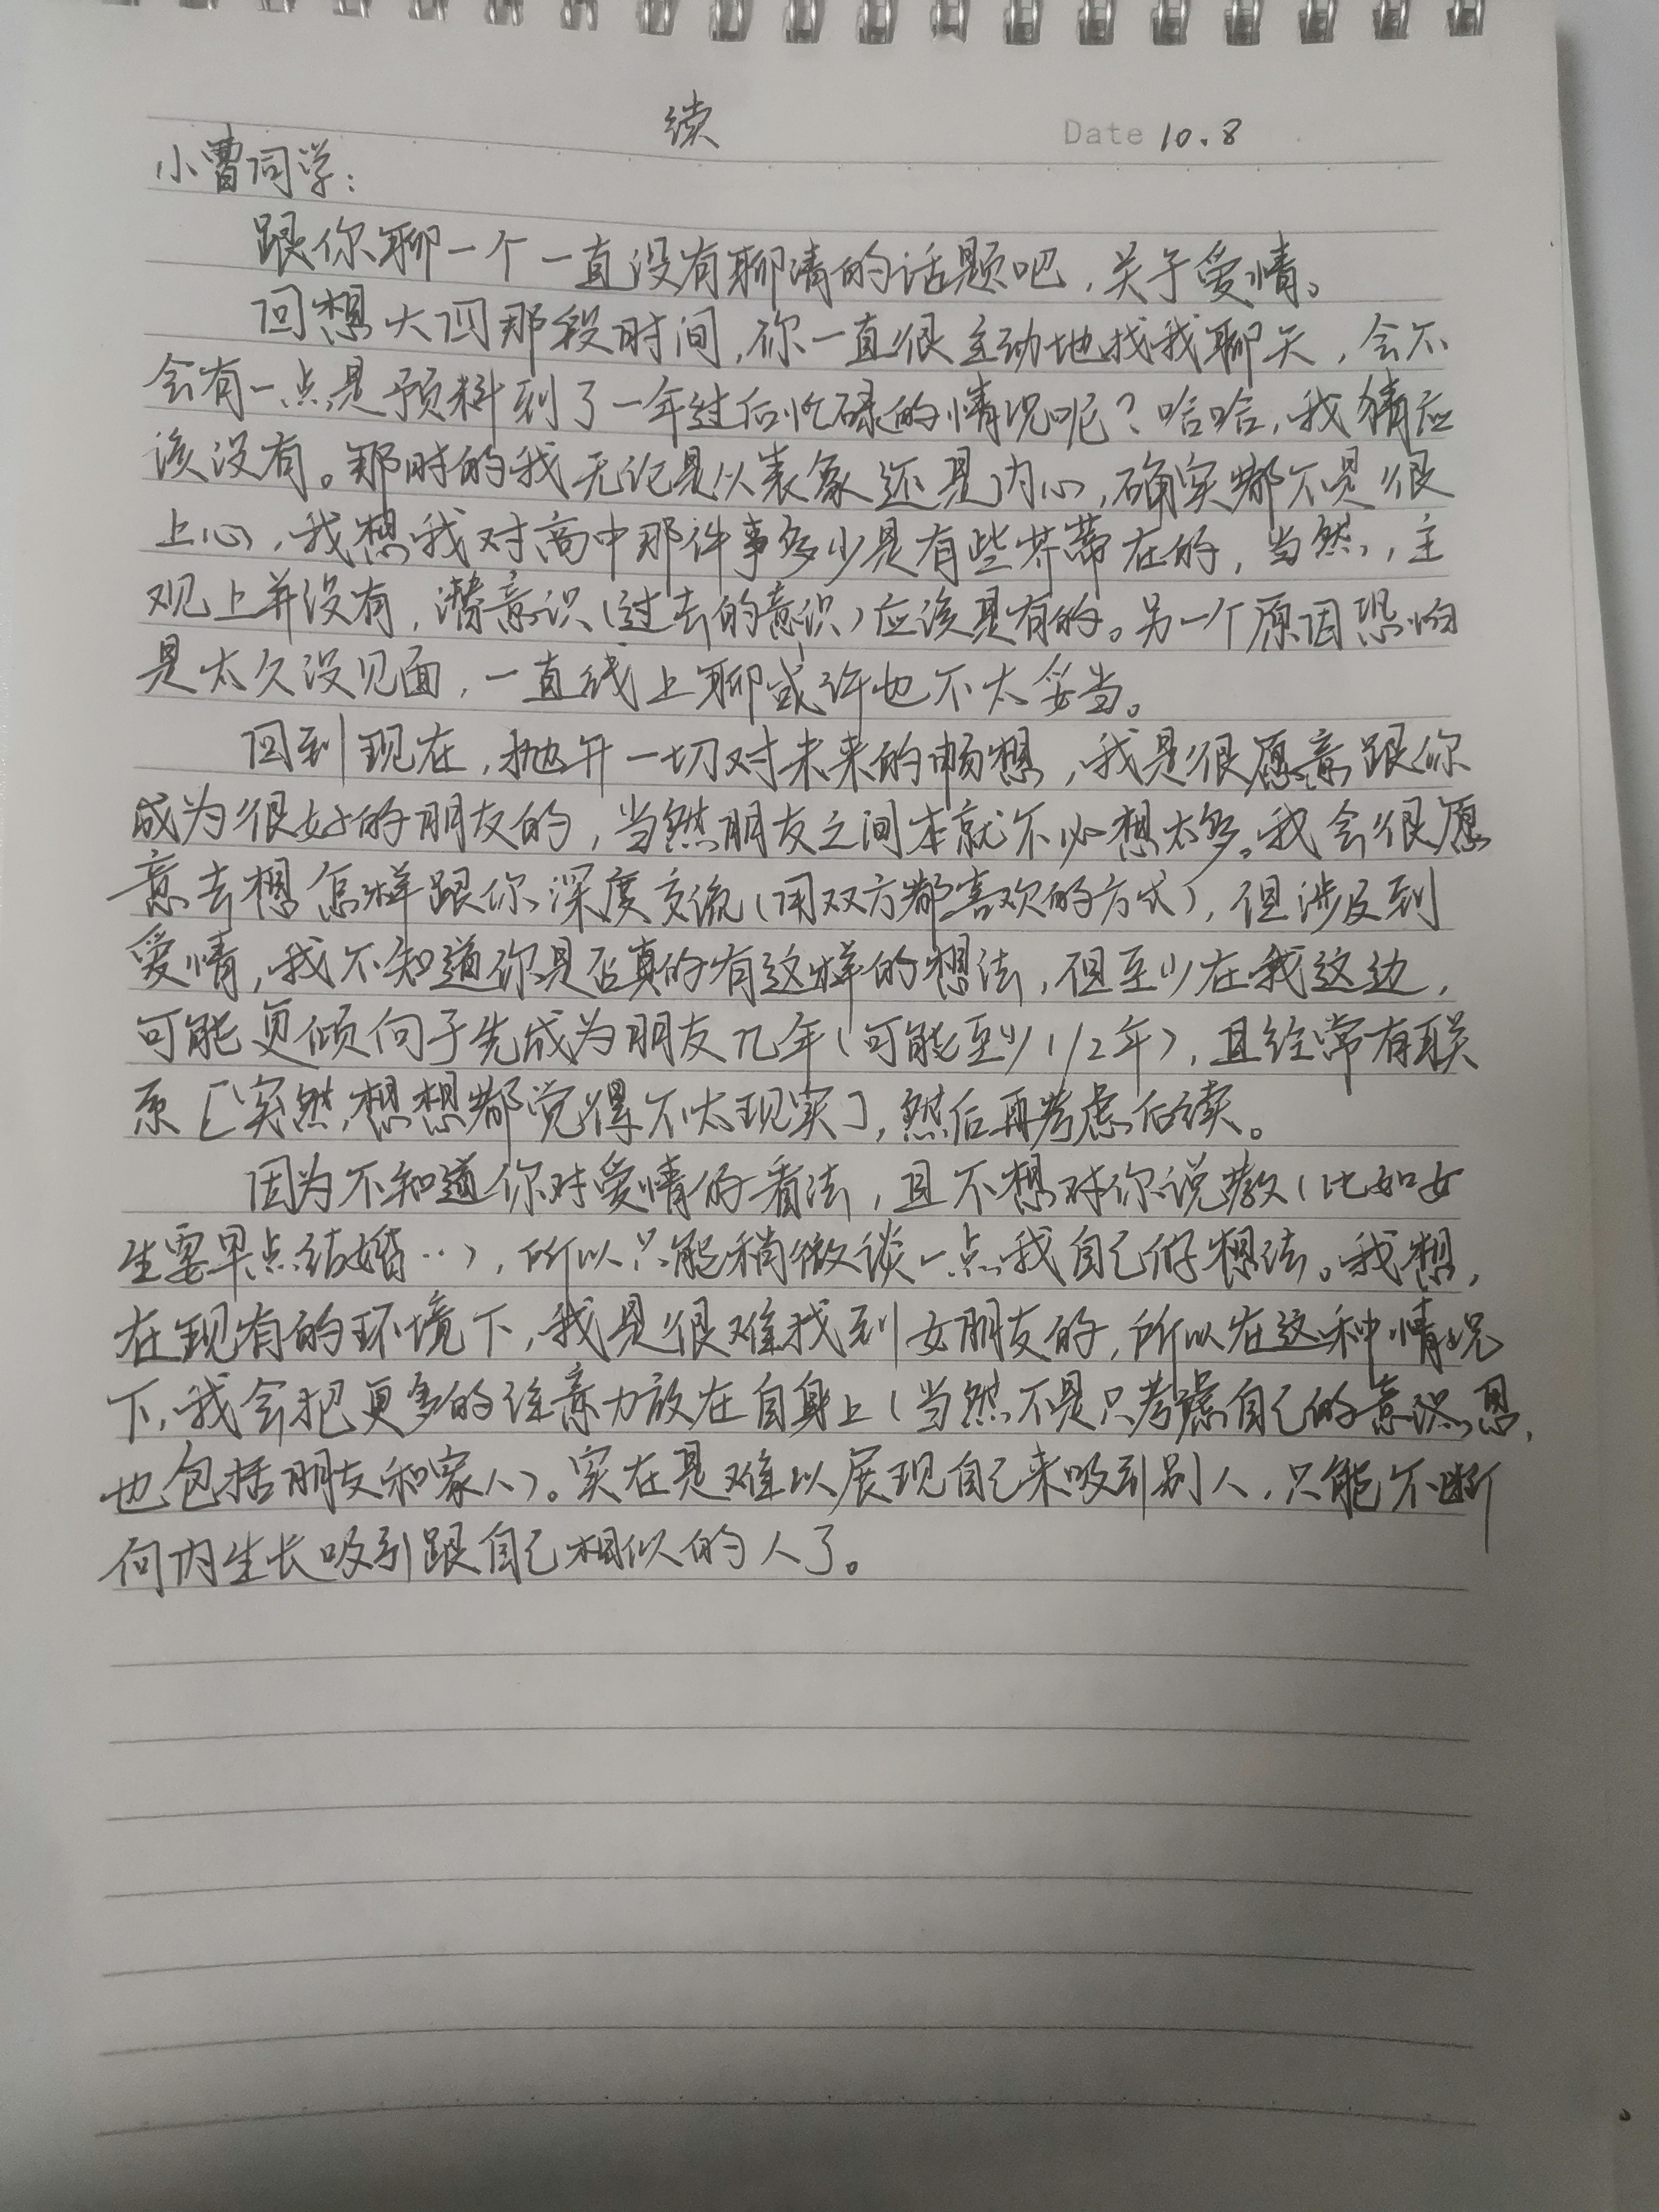 续
Date 10.8
小曹同学：
跟你聊一个一直没有聊清的话题吧，关于爱情。
回想大四那段时间，你一直很主动地找我聊天，会不
会有一点是预料到了一年过后忙碌的情况呢？哈哈，我猜应
该没有。那时的我无论是以表象还是内心，确实都不是很
上心，我想我对高中那件事多少是有些芥蒂在的，当然，主
观上并没有，潜意识（过去的意识）应该是有的。另一个原因恐怕
是太久没见面，一直线上聊或许也不太妥当。
回到现在，抛开一切对未来的畅想，我是很愿意跟你
成为很好的朋友的，当然朋友之间本就不必想太多。我会很愿
意去想怎样跟你深度交流（用双方都喜欢的方式），但涉及到
爱情，我不知道你是否真的有这样的想法，但至少在我这边，
可能更倾向于先成为朋友几年（可能至少1/2年），且经常有联
系［突然，想想都觉得不太现实］，然后再考虑后续。
因为不知道你对爱情的看法，且不想对你说教（比如女
生要早点结婚…），所以只能稍微谈一点我自己的想法。我想，
在现有的环境下，我是很难找到女朋友的，所以在这种情况
下，我会把更多的注意力放在自身上（当然不是只考虑自己的意思，
也包括朋友和家人）。实在是难以展现自己来吸引别人，只能不断
向内生长吸引跟自己相似的人了。